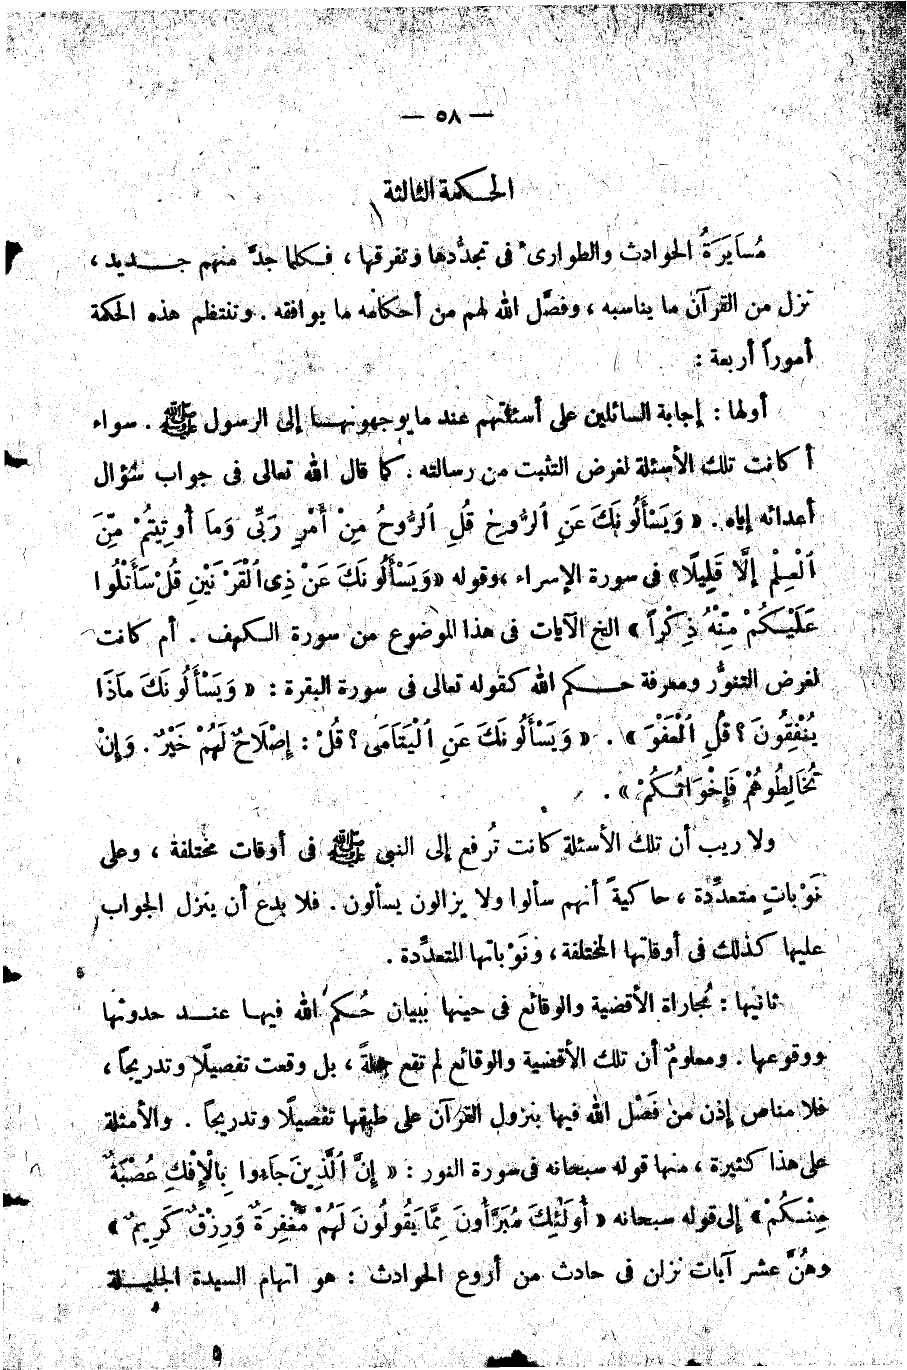 — ٥٨ —
الحكمة الثالثة
مُسَايَرَةُ الحوادث والطوارئ فى تجدُّدها وتفرقها ، فكلما جدَّ منهم جديد ،
نزل من القرآن ما يناسبه ، وفصَّل الله لهم من أحكامه ما يوافقه . وتنتظم هذه الحكمة
أموراً أربعة :
أولها : إجابة السائلين على أسئلتهم عند ما يوجهونها إلى الرسول ﷺ . سواء
أكانت تلك الأسئلة لغرض التثبت من رسالته . كما قال الله تعالى فى جواب سُؤال
أعدائه إياه . « وَيَسْأَلُونَكَ عَنِ ٱلرُّوحِ قُلِ ٱلرُّوحُ مِنْ أَمْرِ رَبِّى وَمَا أُوتِيتُمْ مِّنَ
ٱلْعِلْمِ إِلَّا قَلِيلًا» فى سورة الإسراء ،وقوله «وَيَسْأَلُونَكَ عَنْ ذِى ٱلْقَرْنَيْنِ قُلْ سَأَتْلُوا
عَلَيْكُمْ مِّنْهُ ذِكْراً » الخ الآيات فى هذا الموضوع من سورة الكهف . أم كانت
لغرض التنوُّر ومعرفة حكم الله كقوله تعالى فى سورة البقرة : « وَيَسْأَلُونَكَ مَاذَا
يُنْفِقُونَ ؟ قُلِ ٱلْعَفْوَ » . « وَيَسْأَلُونَكَ عَنِ ٱلْيَتَامَى ؟ قُلْ : إِصْلَاحٌ لَهُمْ خَيْرٌ . وَإِنْ
تُخَالِطُوهُمْ فَإِخْوَانُكُمْ » .
ولا ريب أن تلك الأسئلة كانت تُرفع إلى النبى ﷺ فى أوقات مختلفة ، وعلى
نَوْباتٍ متعدِّدة ، حاكيةً أنهم سألوا ولا يزالون يسألون . فلا بدع أن ينزل الجواب
عليها كذلك فى أوقاتها المختلفة ، ونَوْباتها المتعدِّدة .
ثانيها : مُجاراة الأقضية والوقائع فى حينها ببيان حُكم الله فيها عند حدوثها
ووقوعها . ومعلومٌ أن تلك الأقضية والوقائع لم تقع جملةً ، بل وقعت تفصيلًا وتدريجاً ،
فلا مناص إذن من فَصْل الله فيها بنزول القرآن على طبقها تفصيلًا وتدريجاً . والأمثلة
على هذا كثيرة ، منها قوله سبحانه فى سورة النور : « إِنَّ ٱلَّذِينَ جَاءوا بِالْإِفْكِ عُصْبَةٌ
مِنْكُمْ » إلى قوله سبحانه « أُولَٰئِكَ مُبَرَّأُونَ مِمَّا يَقُولُونَ لَهُمْ مَّغْفِرَةٌ وَرِزْقٌ كَرِيمٌ »
وهُنَّ عشر آيات نزلن فى حادث من أروع الحوادث : هو اتهام السيدة الجليلة